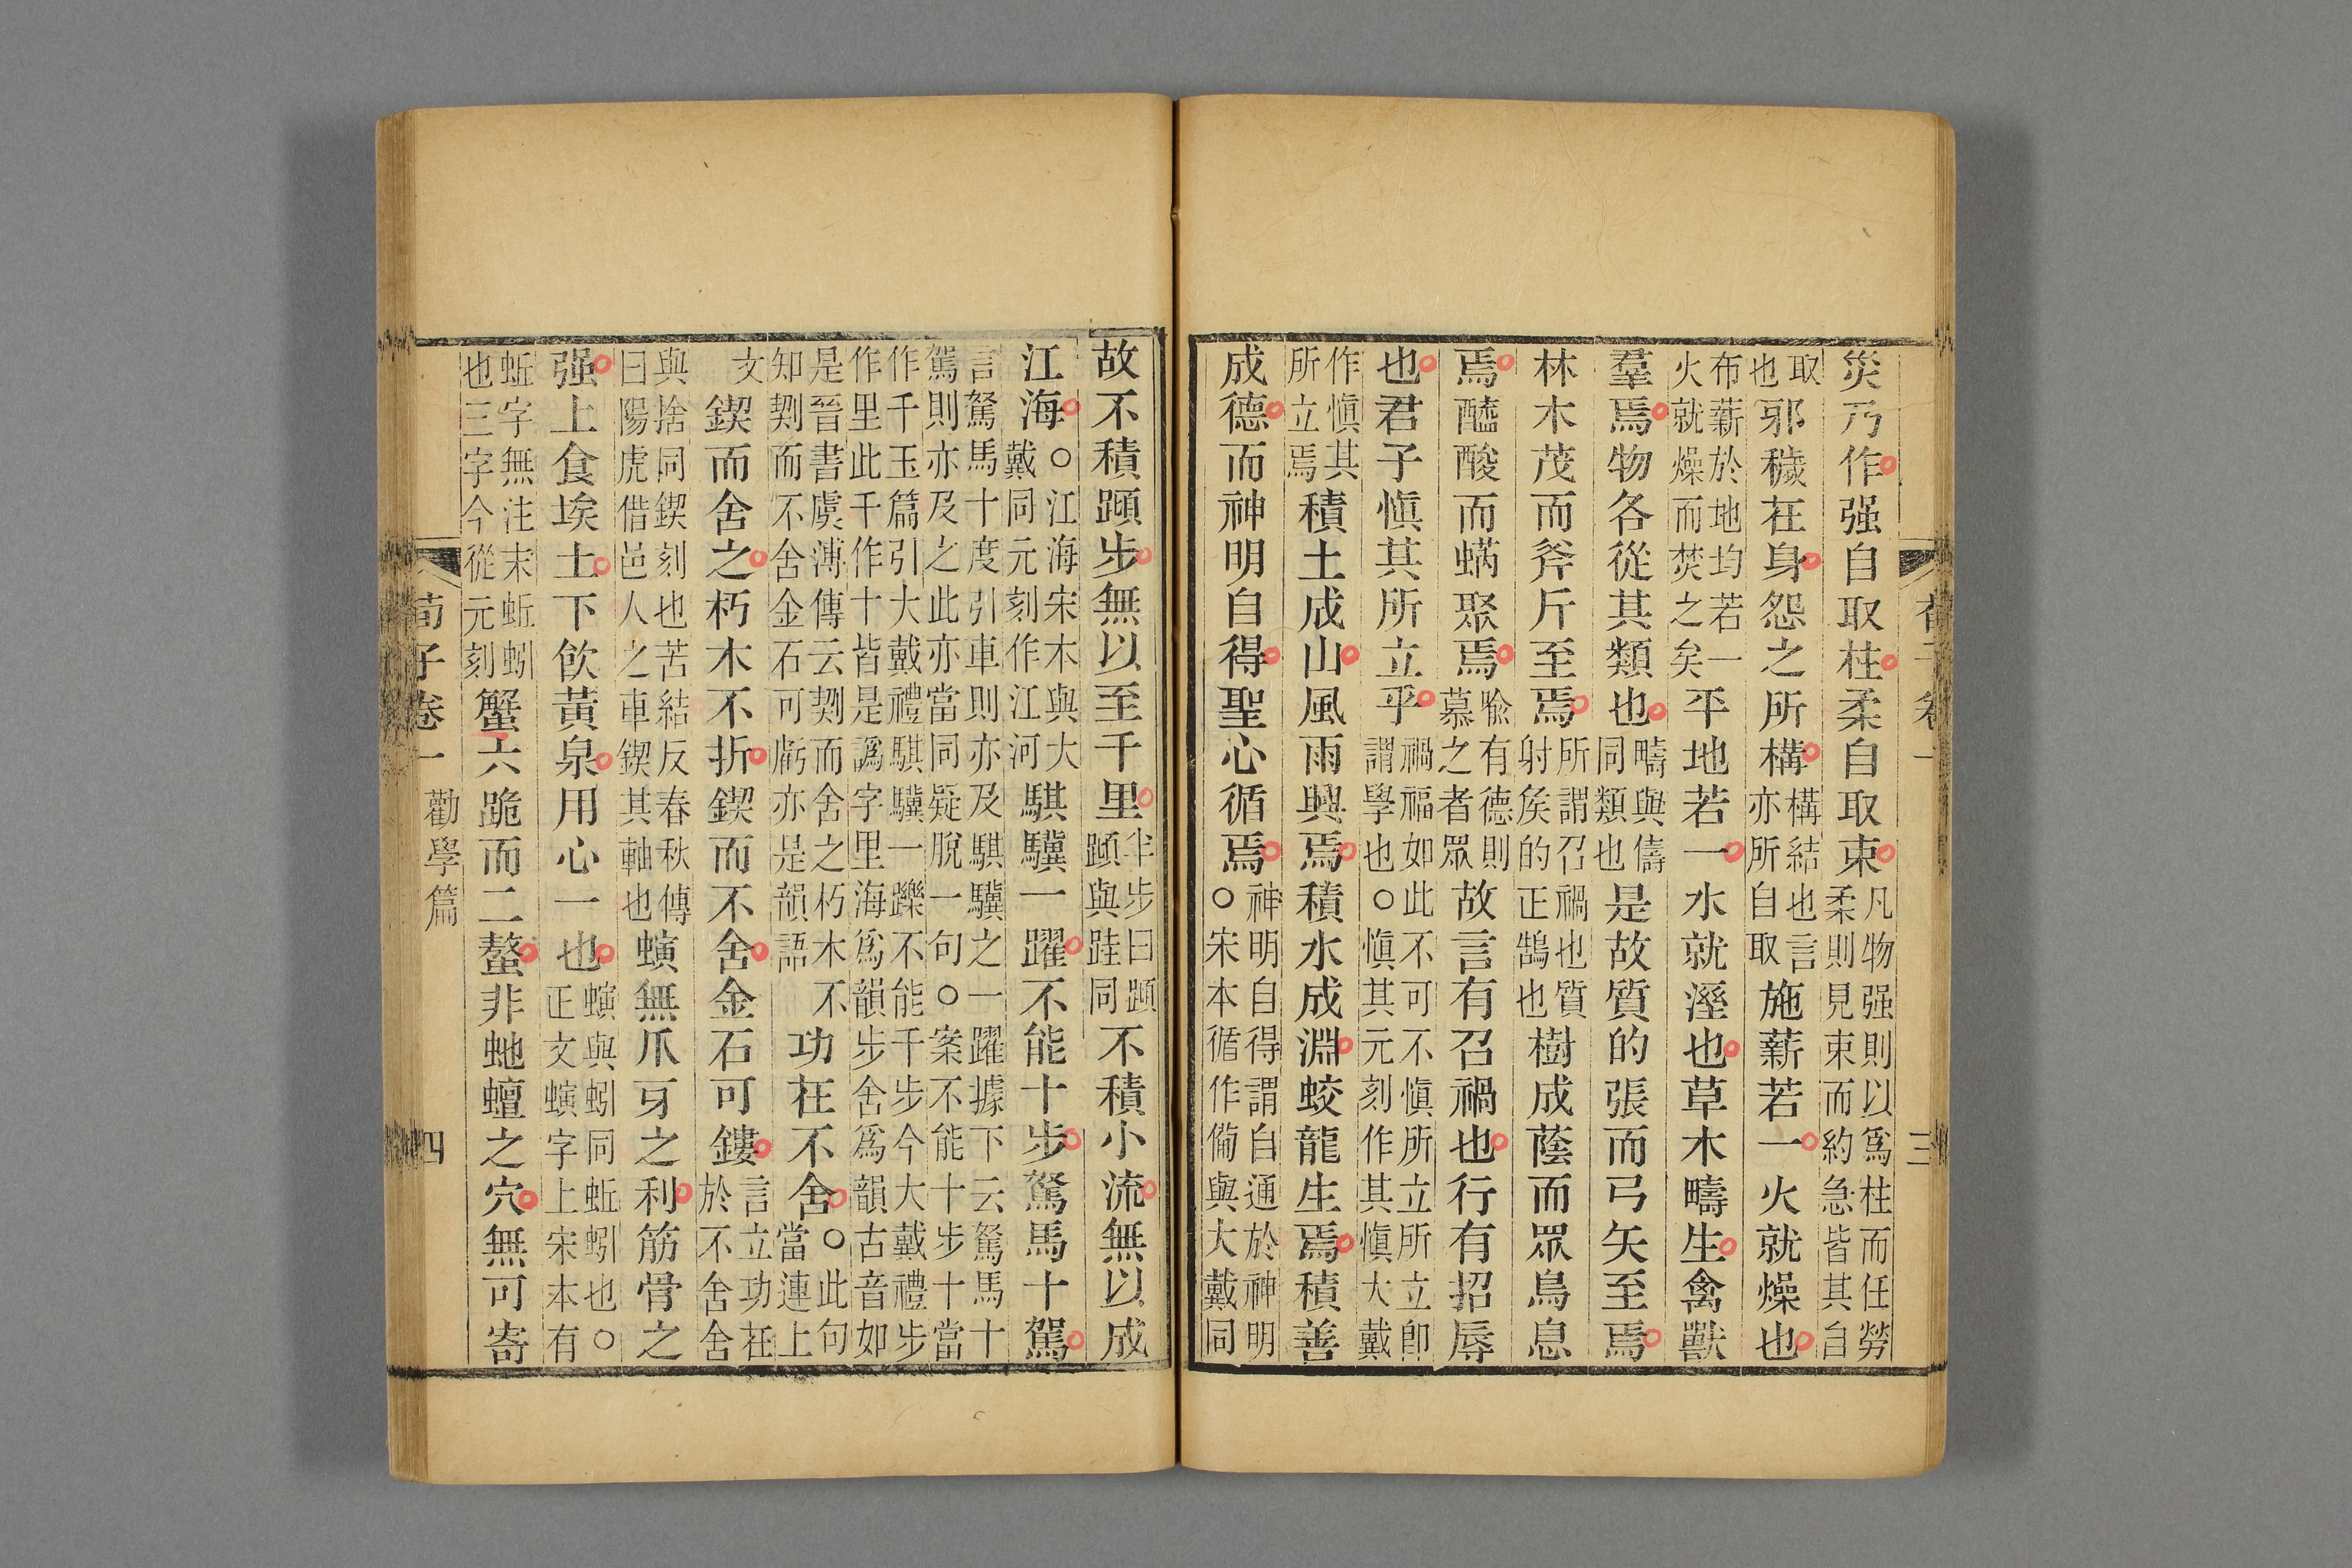 災乃作强自取柱柔自取束凡物强則以爲柱而任勞柔則見束而約急皆其自
取也邪穢在身怨之所構構結也言亦所自取施薪若一火就燥也
布薪於地均若一火就燥而焚之矣平地若一水就溼也草木疇生禽獸
羣焉物各從其類也疇與儔同類也是故質的張而弓矢至焉
林木茂而斧斤至焉所謂召禍也質射矦的正鵠也樹成蔭而眾鳥息
焉醯酸而蜹聚焉喩有德則慕之者眾故言有召禍也行有招辱
也君子愼其所立乎禍福如此不可不愼所立所立卽謂學也○愼其元刻作其愼大戴
作愼其所立焉積土成山風雨興焉積水成淵蛟龍生焉積善
成德而神明自得聖心循焉神明自得謂自通於神明○宋本循作備與大戴同
荀子卷一 三
故不積蹞步無以至千里半步曰蹞蹞與跬同不積小流無以成
江海○江海宋本與大戴同元刻作江河騏驥一躍不能十步駑馬十駕
言駑馬十度引車則亦及騏驥之一躍據下云駑馬十駕則亦及之此亦當同疑脫一句○案不能十步十當
作千玉篇引大戴禮騏驥一躒不能千步今大戴禮步作里此千作十皆是譌字里海爲韻步舍爲韻古音如
是晉書虞溥傳云剿而舍之朽木不知剿而不舍金石可虧亦是韻語功在不舍○此句當連上
文鍥而舍之朽木不折鍥而不舍金石可鏤言立功在於不舍舍
與捨同鍥刻也苦結反春秋傳曰陽虎借邑人之車鍥其軸也螾無爪牙之利筋骨之
强上食埃土下飮黃泉用心一也螾與蚓同蚯蚓也○正文螾字上宋本有
蚯字無注末蚯蚓也三字今從元刻蟹六跪而二螯非虵蟺之穴無可寄
荀子卷一 勸學篇 四